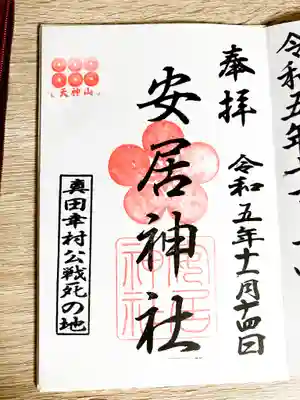 奉拝
令和五年十一月十四日
安居神社
天神山
真田幸村公戦死の地
安居神社
令和五年十